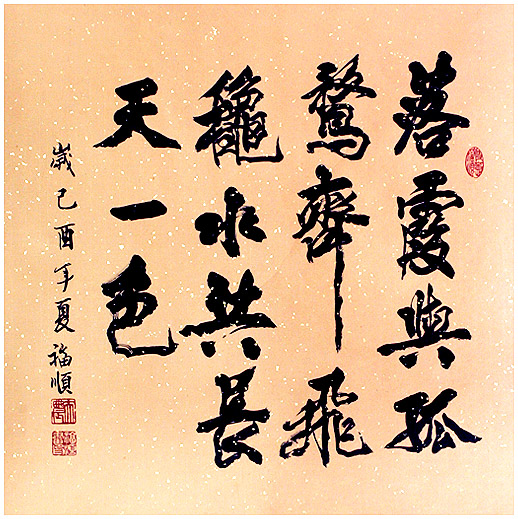 落霞與孤
鶩齊飛
龝水共長
天一色
歲己酉年夏福順